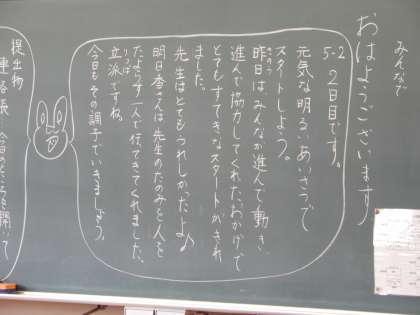 みんなで
おはようございます
5-2 2日目です。
元気な明るいあいさつで
スタートしよう。
昨日はみんなが進んで動き、
進んで協力してくれたおかげで
とてもすてきなスタートがきれ
ました。
先生はとてもうれしかったよ♪
明日香さんは先生のたのみを人を
たよらず一人で行ってきてくれました。
立派ですね。
今日もその調子でいきましょう。
提出物
連絡帳